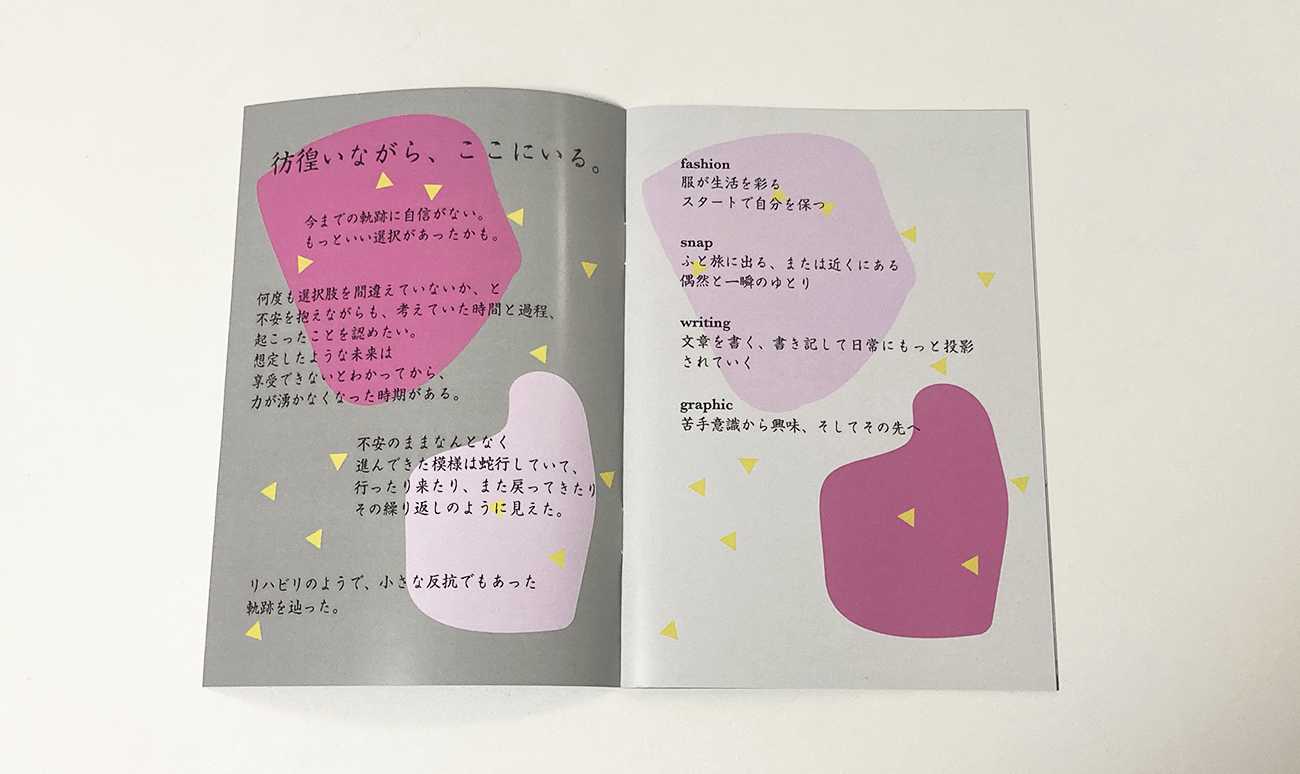 彷徨いながら、ここにいる。
今までの軌跡に自信がない。
もっといい選択があったかも。
何度も選択肢を間違えていないか、と
不安を抱えながらも、考えていた時間と過程、
起こったことを認めたい。
想定したような未来は
享受できないとわかってから、
力が湧かなくなった時期がある。
不安のままなんとなく
進んできた模様は蛇行していて、
行ったり来たり、また戻ってきたり
その繰り返しのように見えた。
リハビリのようで、小さな反抗でもあった
軌跡を辿った。
fashion
服が生活を彩る
スタートで自分を保つ
snap
ふと旅に出る、または近くにある
偶然と一瞬のゆとり
writing
文章を書く、書き記して日常にもっと投影
されていく
graphic
苦手意識から興味、そしてその先へ